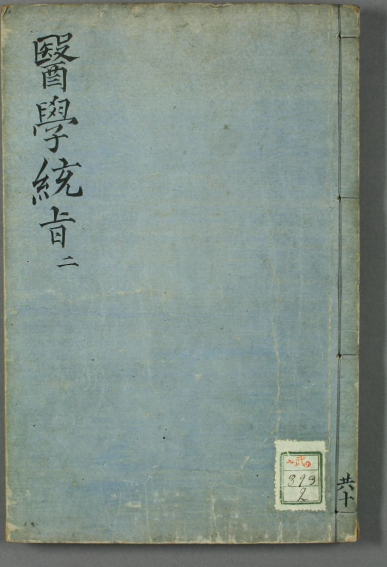 醫學統旨 二
共十
393
2